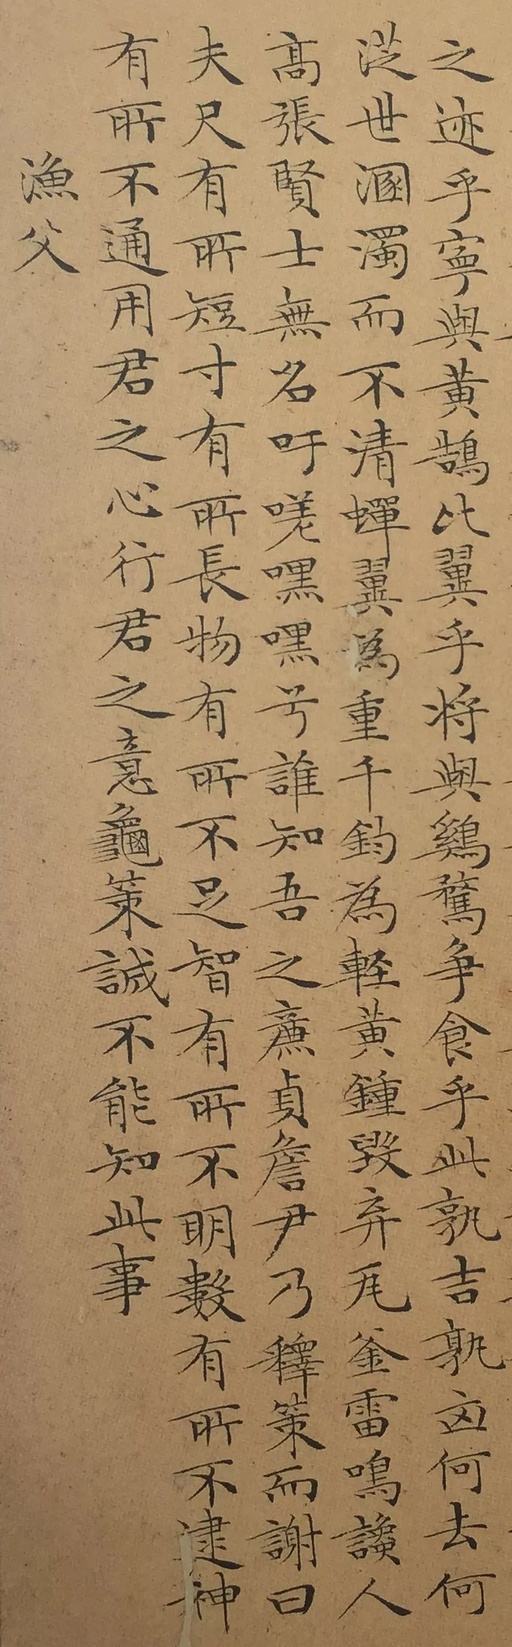 之迹乎寧與黃鵠比翼乎將與鷄鶩爭食乎此孰吉孰凶何去何
從世溷濁而不清蟬翼為重千鈞為輕黃鍾毀弃瓦釜雷鳴讒人
高張賢士無名吁嗟嘿嘿兮誰知吾之廉貞詹尹乃釋策而謝曰
夫尺有所短寸有所長物有所不足智有所不明數有所不逮神
有所不通用君之心行君之意龜策誠不能知此事
漁父